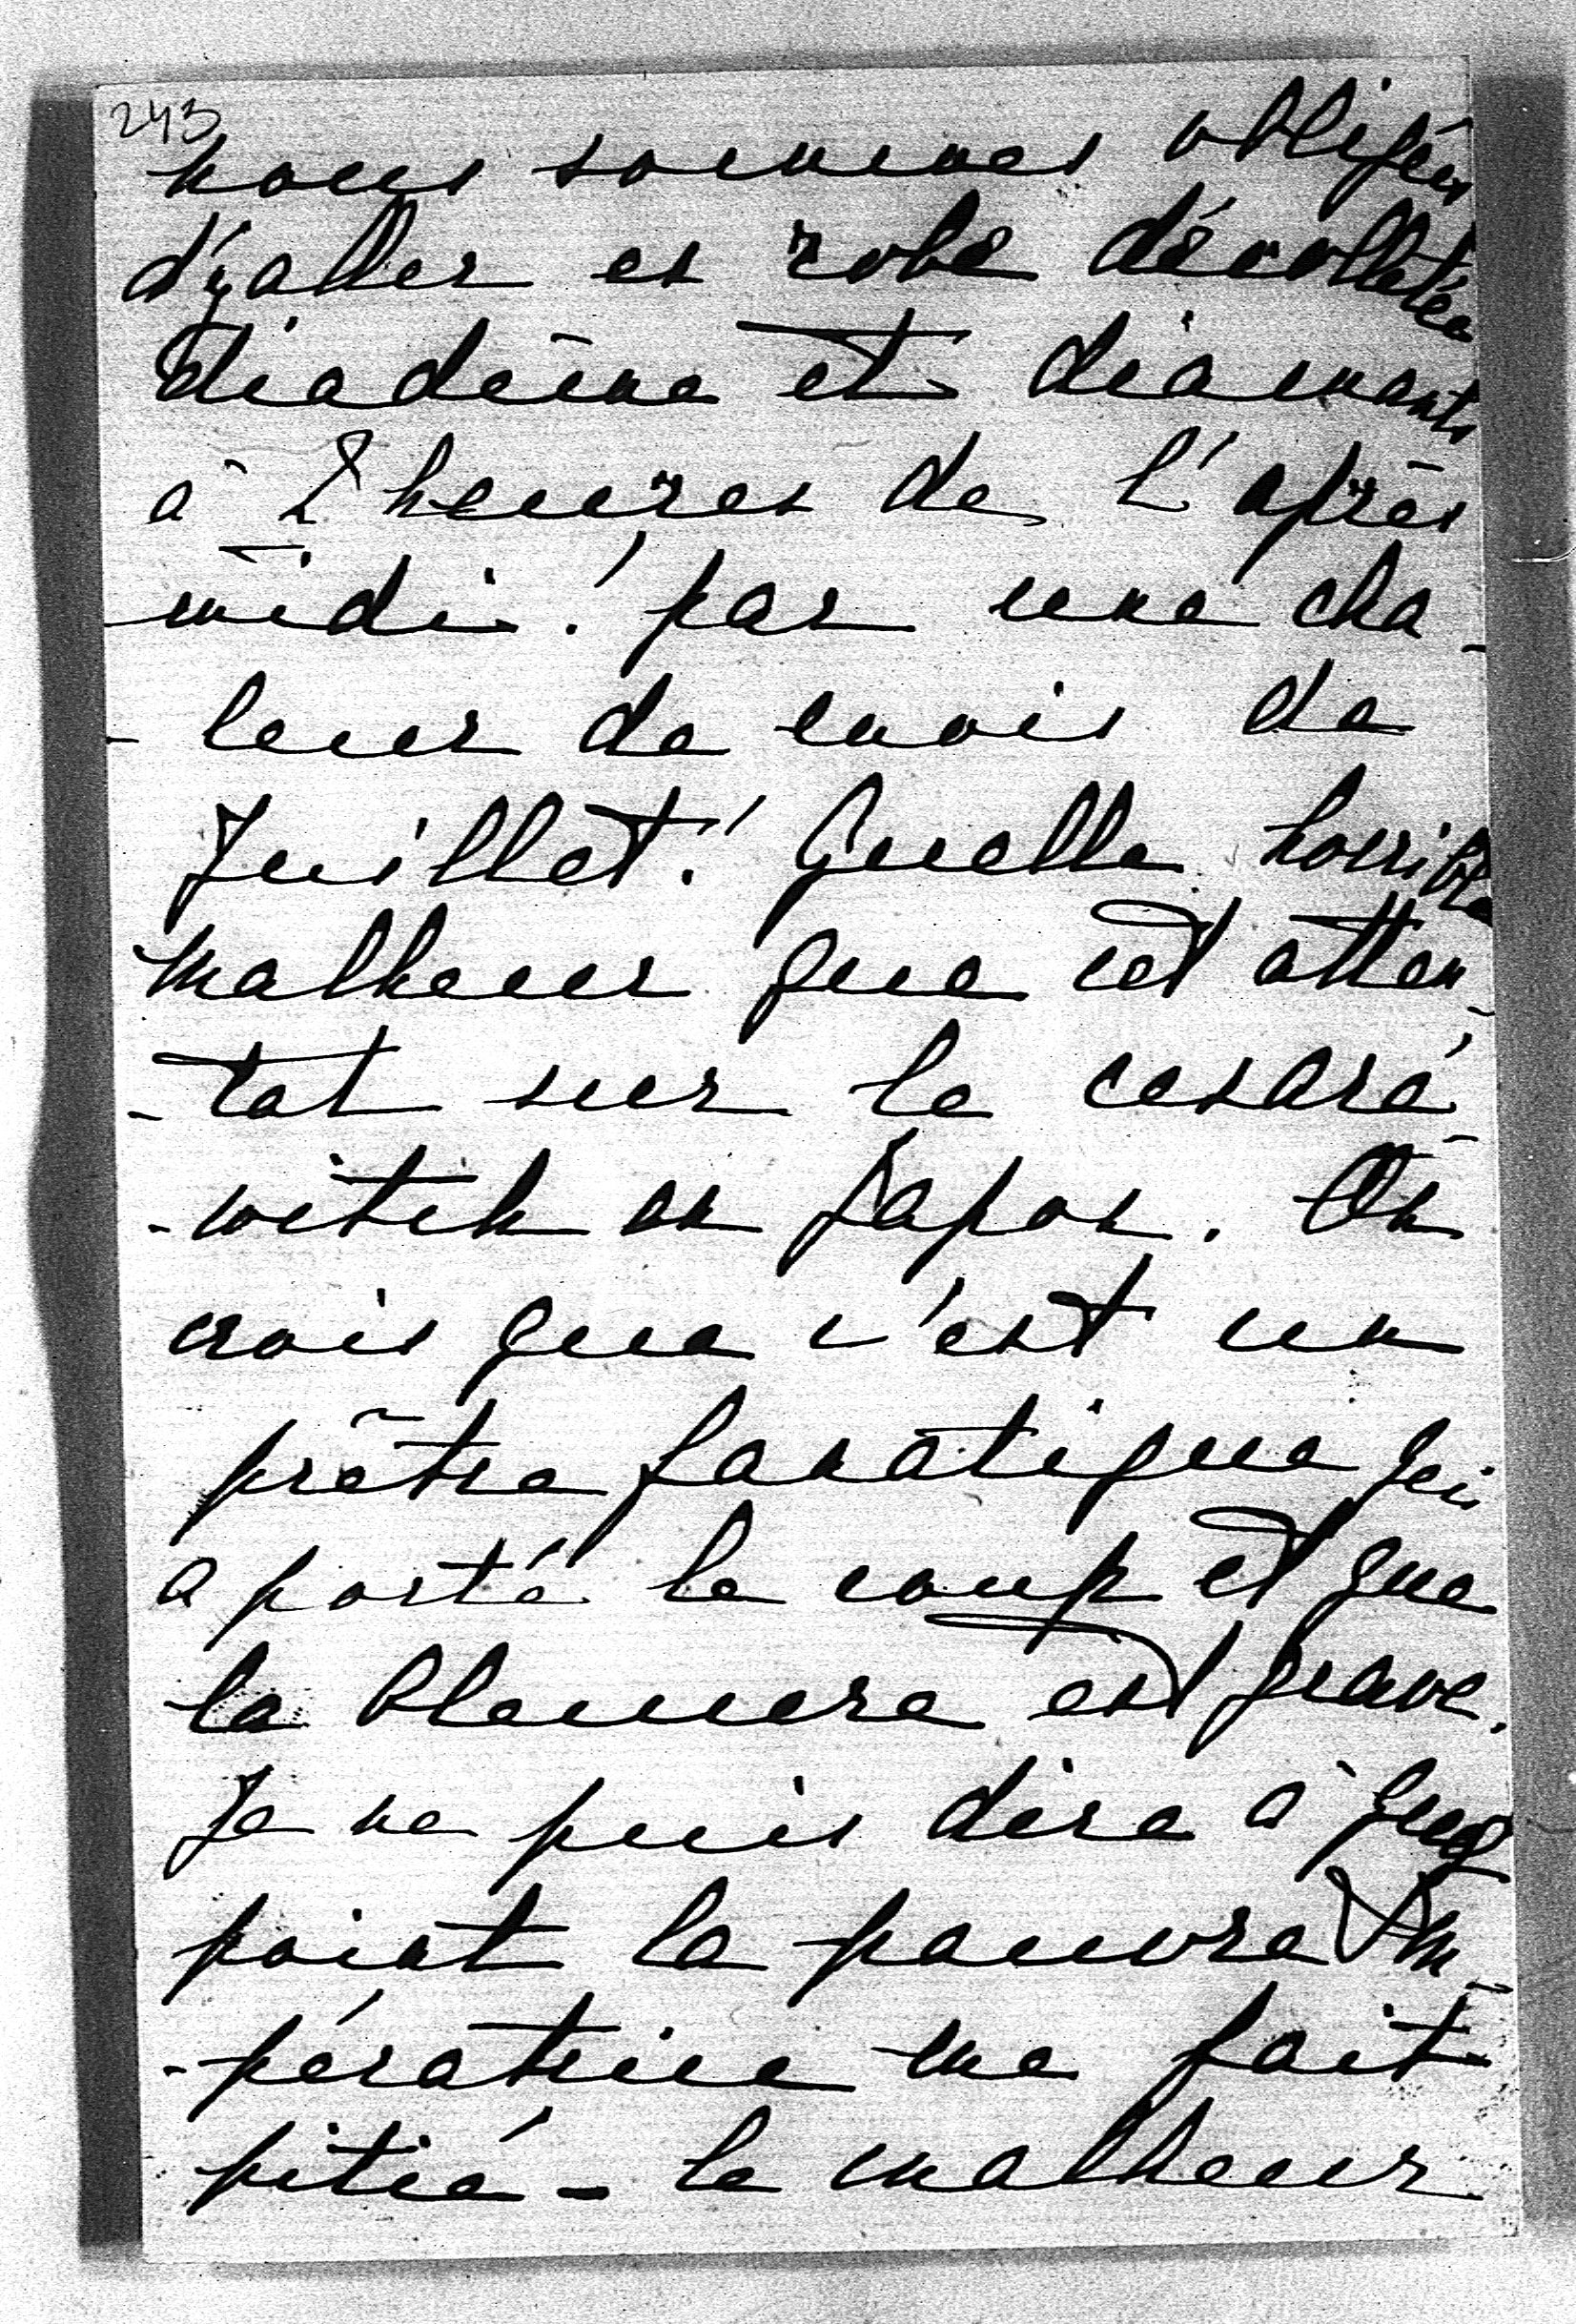 243
nous sommes obligées
d'y aller en robe décolletée
diadème et diamants
à 2 heures de l'après
midi! par une cha-
-leur de mois de
Juillet! Quelle horrible
malheur que cet atten-
-tat sur le cesaré-
-witch en Japon. On
crois que c'est un
prêtre fanatique qui
a porté le coup et que
la blessure est grave.
Je ne puis dire à quel
point la pauvre Im-
-pératrice me fait
pitié - le malheur